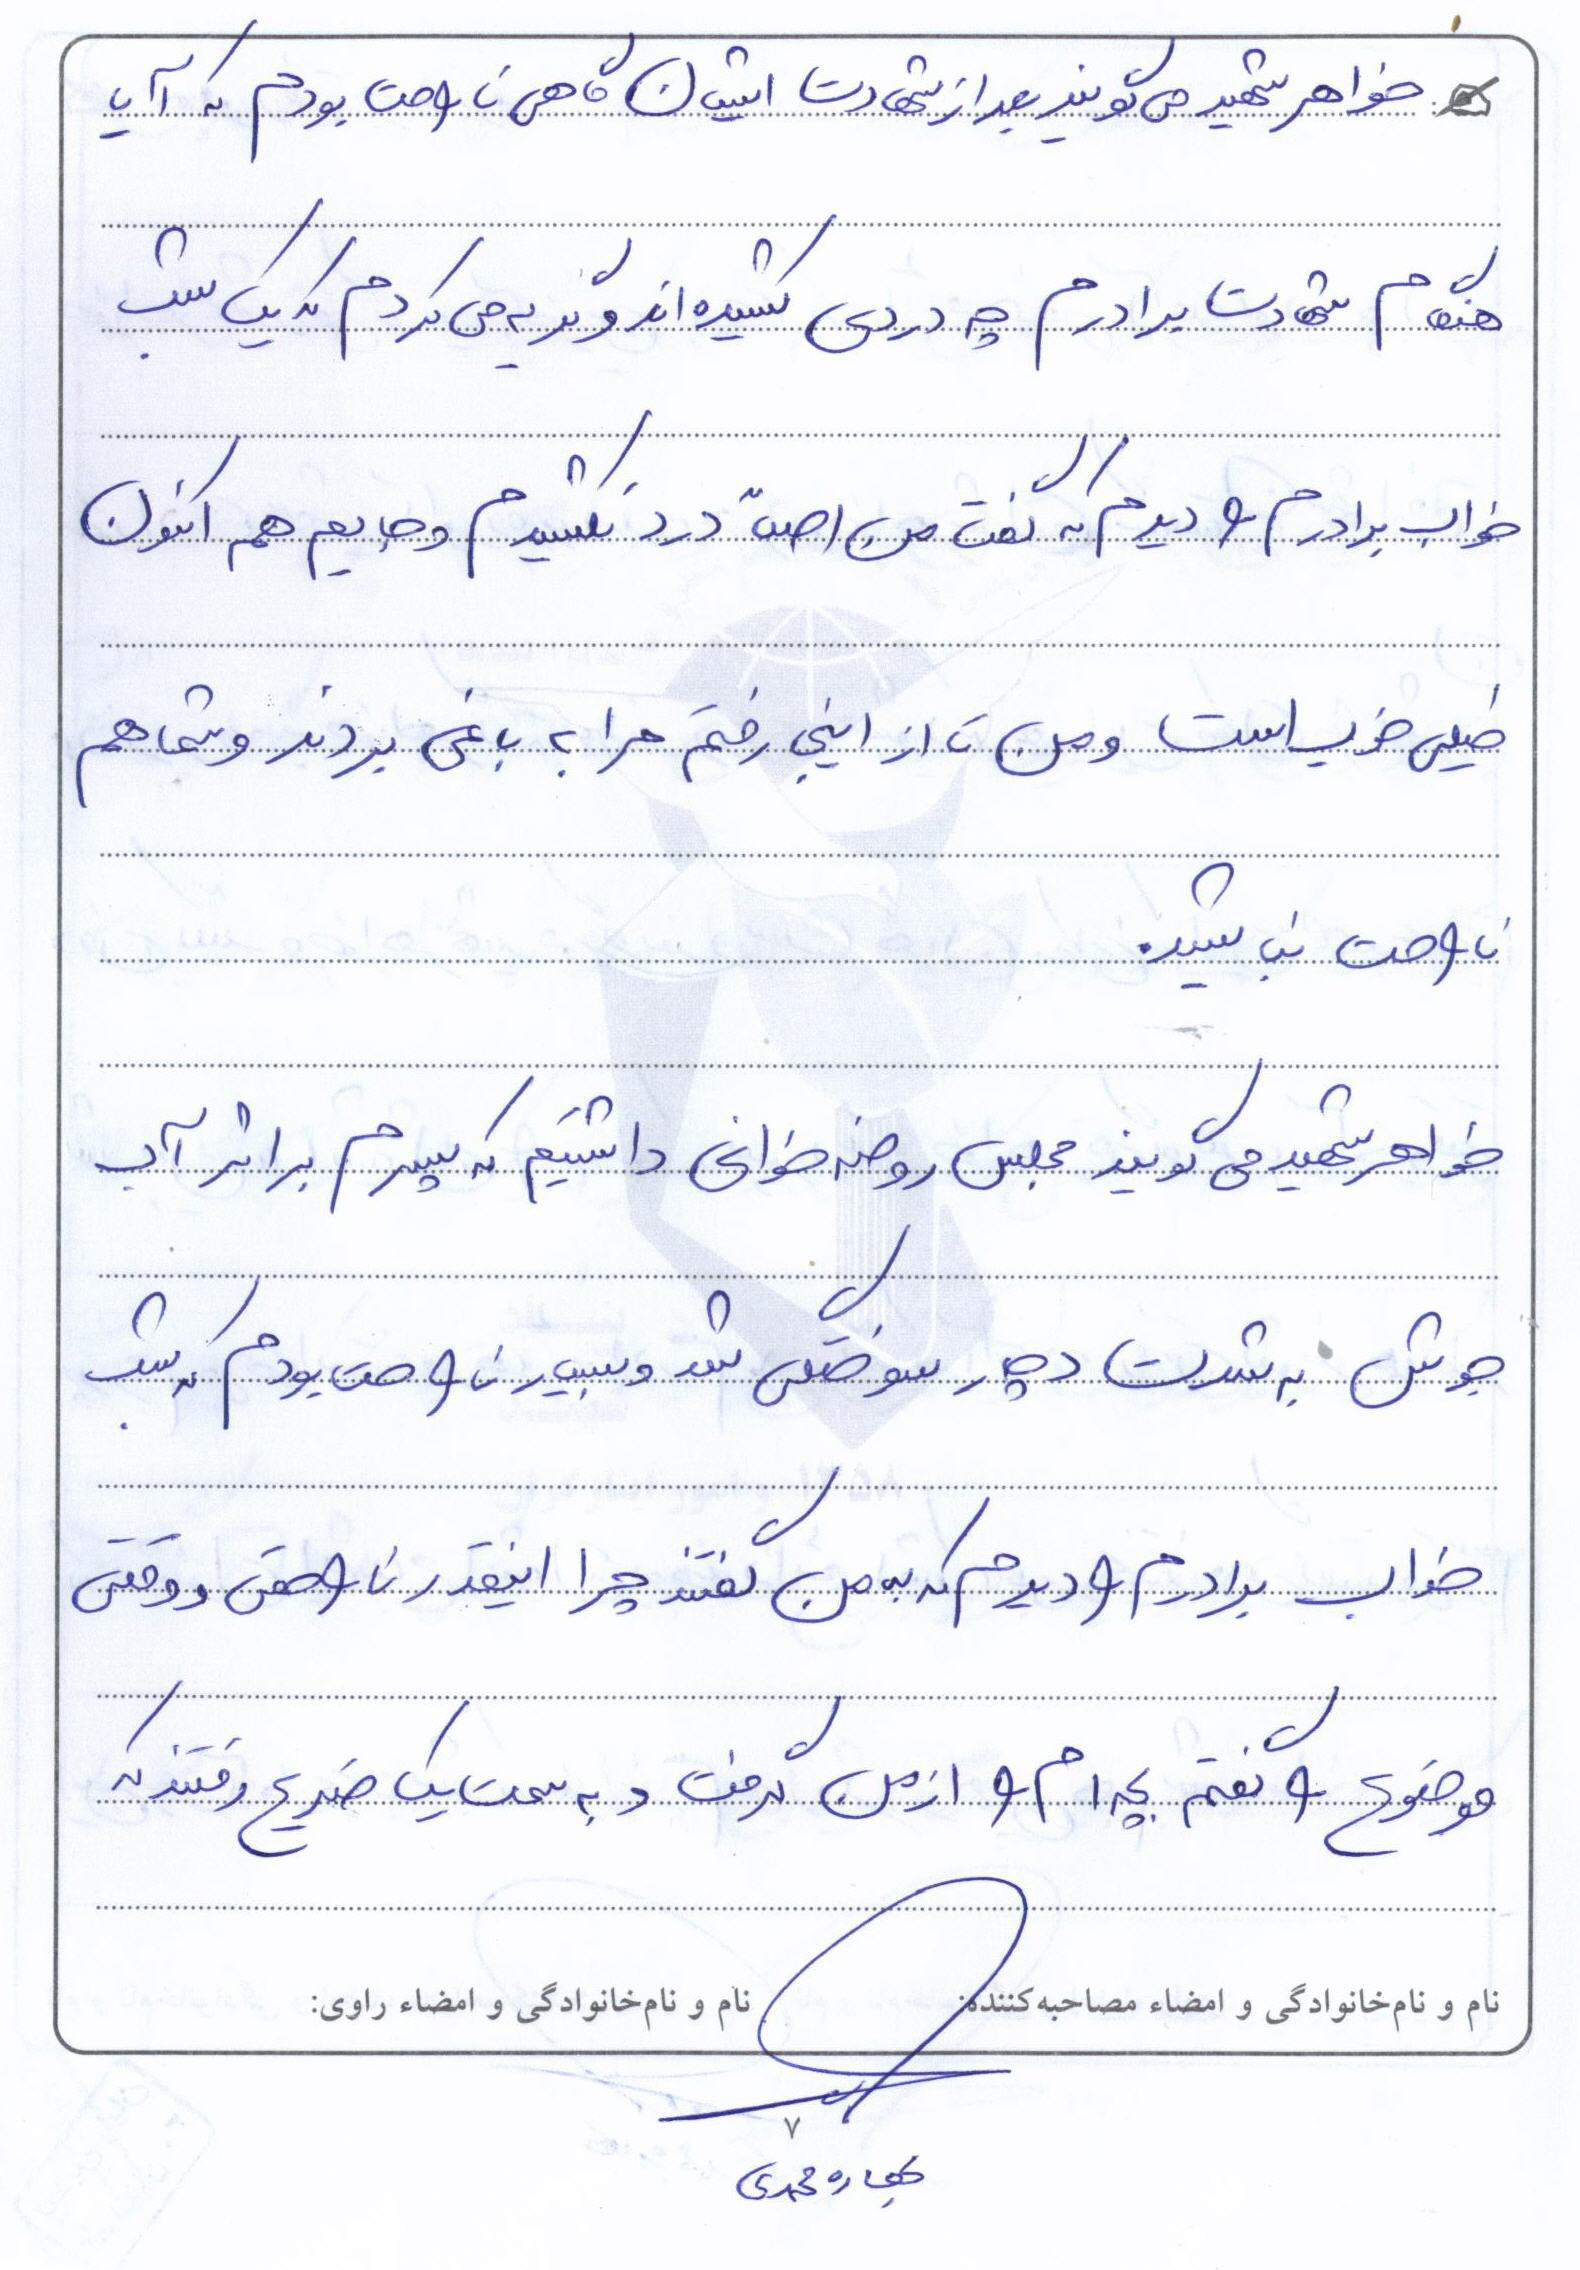 خواهر شهید می گویند بعد از شهادت ایشان گاهی ناراحت بودم که آیا
هنگام شهادت برادرم چه دردی کشیده اند و گریه می کردم که یک شب
خواب برادرم را دیدم که گفت من اصلاً درد نکشیدم و جایم هم اکنون
خیلی خوب است و من تا از اینجا رفتم مرا به باغی بردند و شما هم
ناراحت نباشید.
خواهر شهید می گویند مجلس روضه خوانی داشتیم که پسرم بر اثر آب
جوش به شدت دچار سوختگی شد و بسیار ناراحت بودم که شب
خواب برادرم را دیدم که به من گفتند چرا اینقدر ناراحتی و وقتی
موضوع را گفتم بچه ام را از من گرفت و به سمت یک ضریح رفتند که
نام و نام‌خانوادگی و امضاء مصاحبه‌کننده: نام و نام‌خانوادگی و امضاء راوی:
۷
محمدی